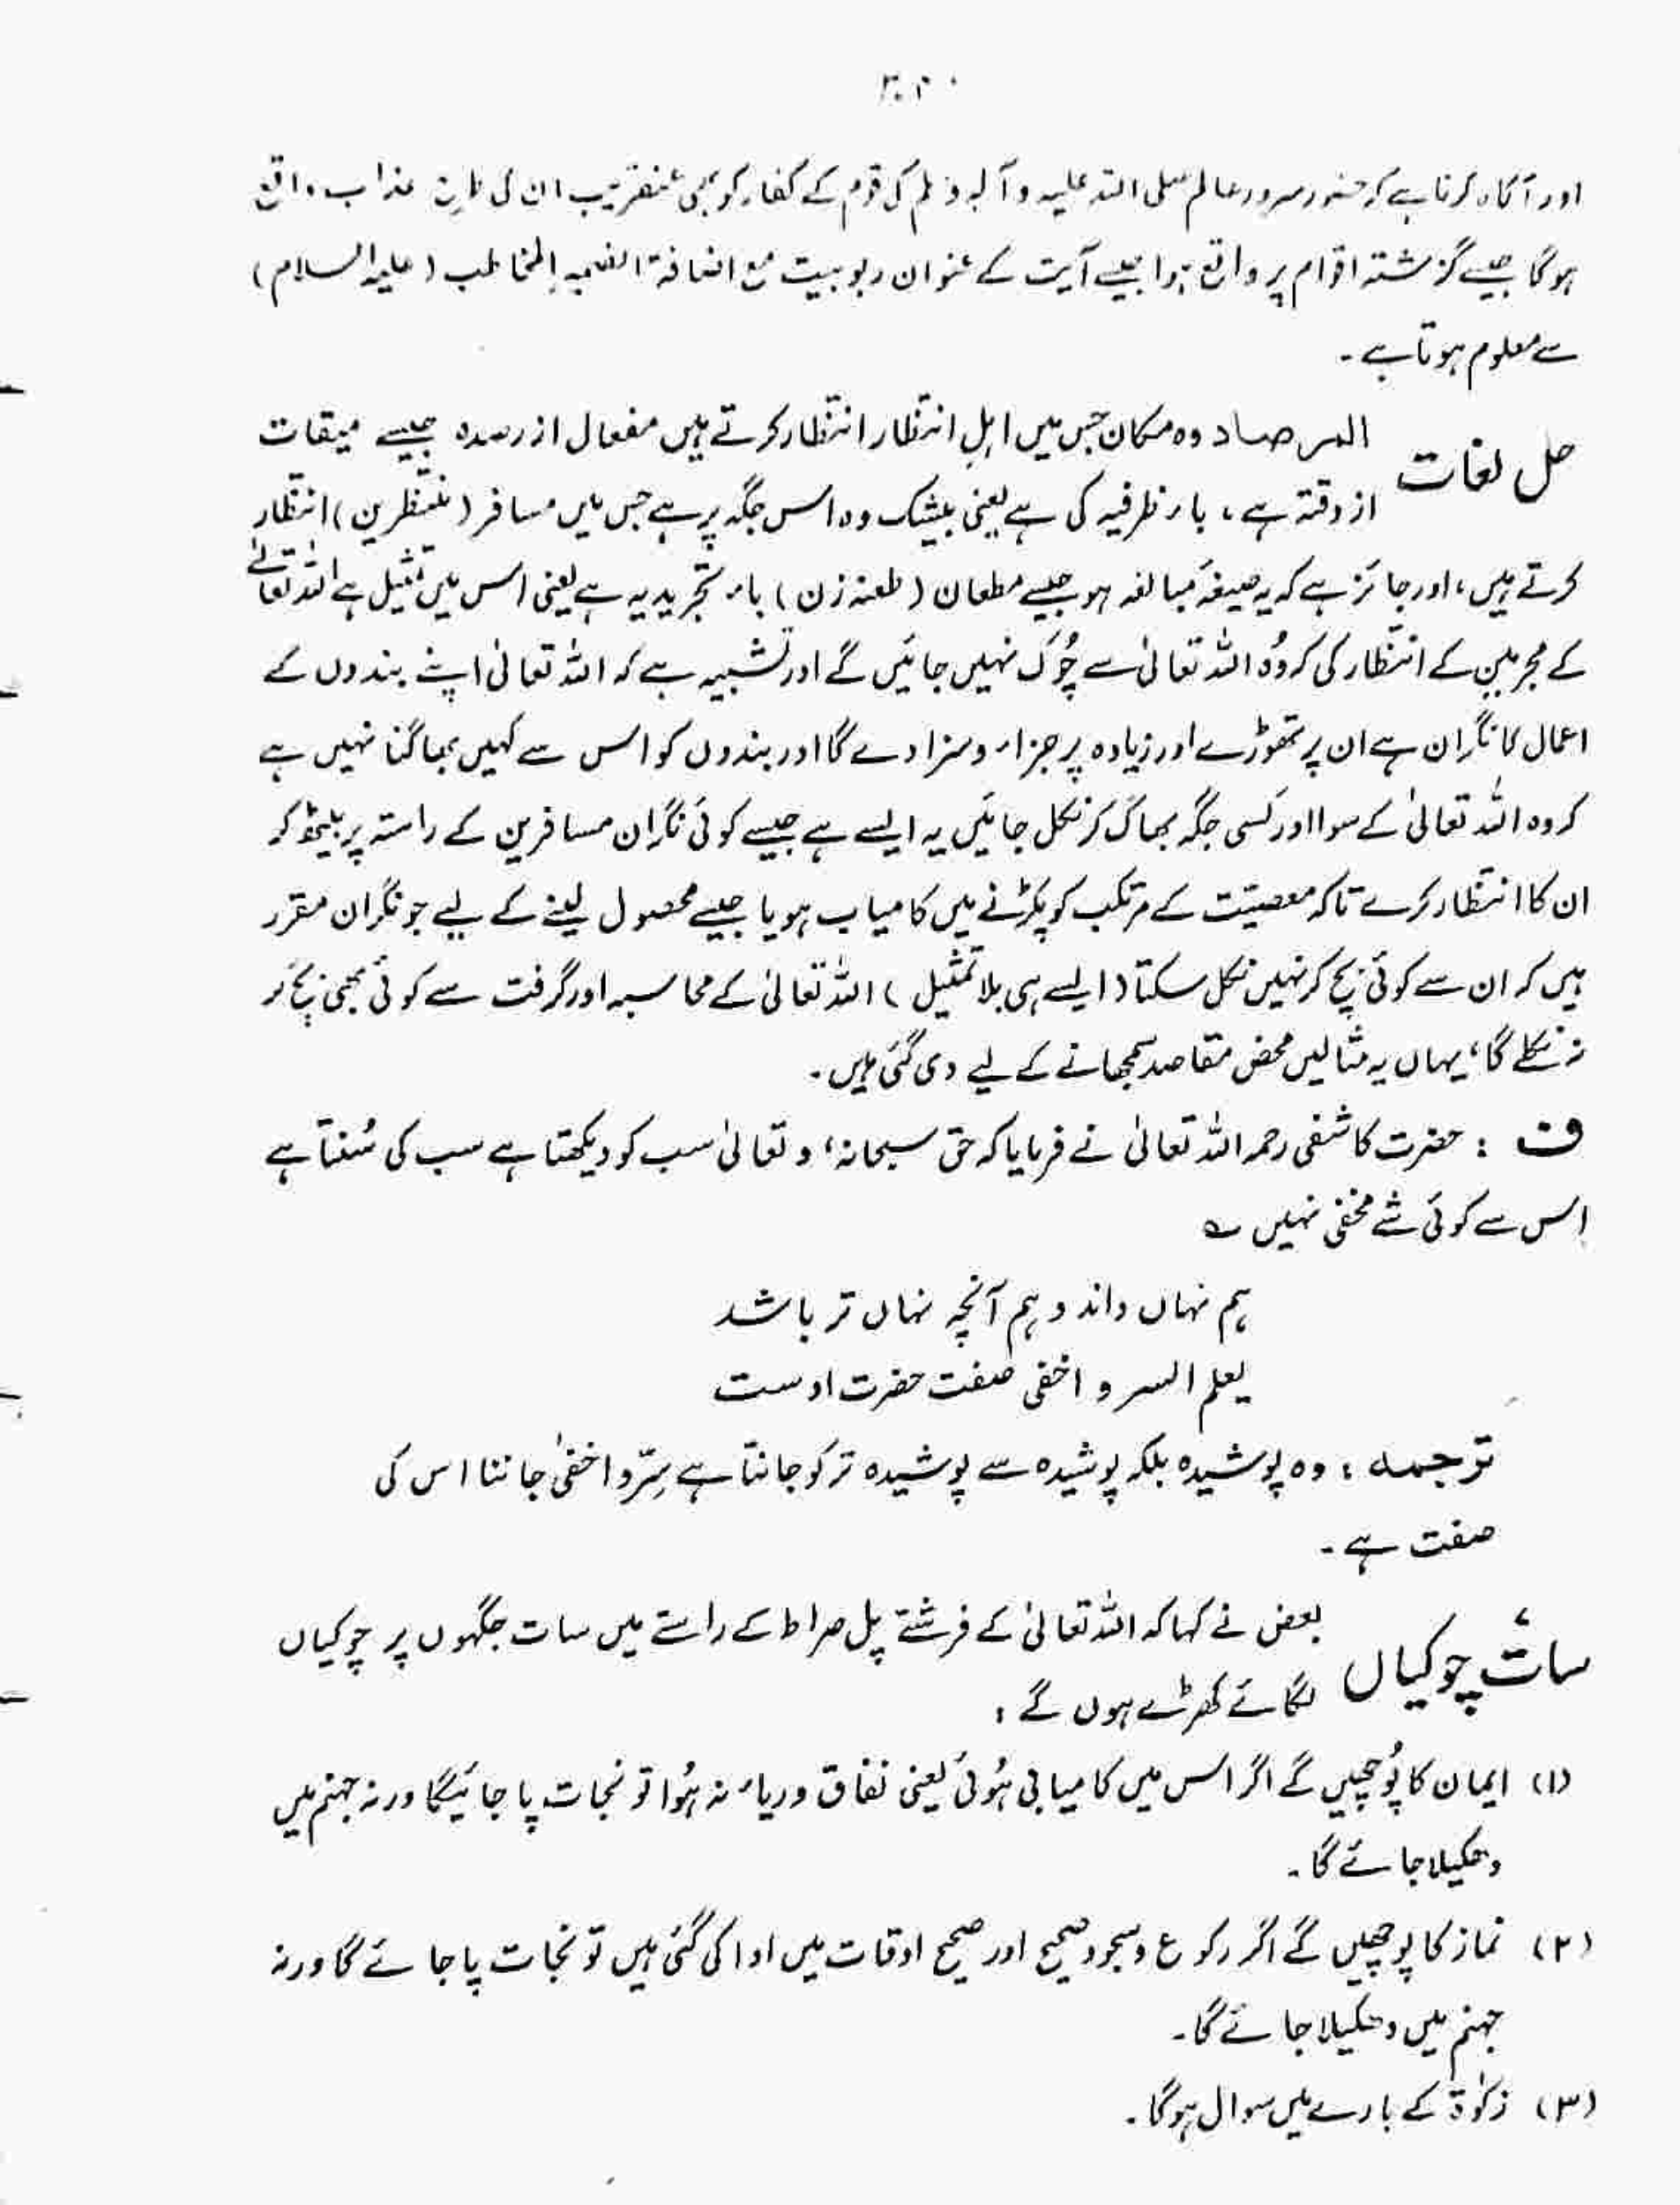 اور آگاہ کرنا ہے کہ حضور سرور عالم صلی اللہ علیہ وآلہ وسلم کی قوم کے کفار کو بھی عنقریب ان کی طرح عذاب واقع
ہوگا جیسے گزشتہ اقوام پر واقع ہوا جیسے آیت کے عنوان ربوبیت مع اضافۃ الضمیر المخاطب (علیہ السلام)
سے معلوم ہوتا ہے۔
حل لغات المرصاد وہ مکان جس میں اہلِ انتظار انتظار کرتے ہیں مفعال از رصدہ جیسے میقات
از وقتہ ہے، باء ظرفیہ کی ہے یعنی بیشک وہ اس جگہ پر ہے جس میں مسافر (منتظرین) انتظار
کرتے ہیں، اور جائز ہے کہ یہ صیغۂ مبالغہ ہو جیسے مطعان (طعنہ زن) باء تجریدیہ ہے یعنی اس میں تمثیل ہے اللہ تعالےٰ
کے مجرمین کے انتظار کی کہ وُہ اللہ تعالیٰ سے چُوک نہیں جائیں گے اور تشبیہ ہے کہ اللہ تعالیٰ اپنے بندوں کے
اعمال کا نگران ہے ان پر تھوڑے اور زیادہ پر جزاء و سزا دے گا اور بندوں کو اس سے کہیں بھاگنا نہیں ہے
کہ وہ اللہ تعالیٰ کے سوا اور کسی جگہ بھاگ کر نکل جائیں یہ ایسے ہے جیسے کوئی نگران مسافرین کے راستہ پر بیٹھ کر
ان کا انتظار کرے تاکہ معصیّت کے مرتکب کو پکڑنے میں کامیاب ہو یا جیسے محصول لینے کے لیے جو نگران مقرر
ہیں کہ ان سے کوئی بچ کر نہیں نکل سکتا (ایسے ہی بلا تمثیل) اللہ تعالیٰ کے محاسبہ اور گرفت سے کوئی بھی بچ کر
نہ نکلے گا، یہاں یہ مثالیں محض مقاصد سمجھانے کے لیے دی گئی ہیں۔
ف : حضرت کاشفی رحمہ اللہ تعالیٰ نے فرمایا کہ حق سبحانہٗ و تعالیٰ سب کو دیکھتا ہے سب کی سُنتا ہے
اس سے کوئی شے مخفی نہیں ؎
ہم نہاں داند و ہم آنچہ نہاں تر باشد
یعلم السر و اخفی صفت حضرت اوست
ترجمہ : وہ پوشیدہ بلکہ پوشیدہ سے پوشیدہ تر کو جانتا ہے سِرّ و اخفیٰ جاننا اس کی
صفت ہے۔
سات چوکیاں بعض نے کہا کہ اللہ تعالیٰ کے فرشتے پل صراط کے راستے میں سات جگہوں پر چوکیاں
لگائے کھڑے ہوں گے :
(۱) ایمان کا پُوچھیں گے اگر اس میں کامیابی ہُوئی یعنی نفاق و ریاء نہ ہُوا تو نجات پا جائیگا ورنہ جہنم میں
دھکیلا جائے گا۔
(۲) نماز کا پوچھیں گے اگر رکوع و سجود صحیح اور صحیح اوقات میں ادا کی گئی ہیں تو نجات پا جائے گا ورنہ
جہنم میں دھکیلا جائے گا۔
(۳) زکوٰۃ کے بارے میں سوال ہوگا۔